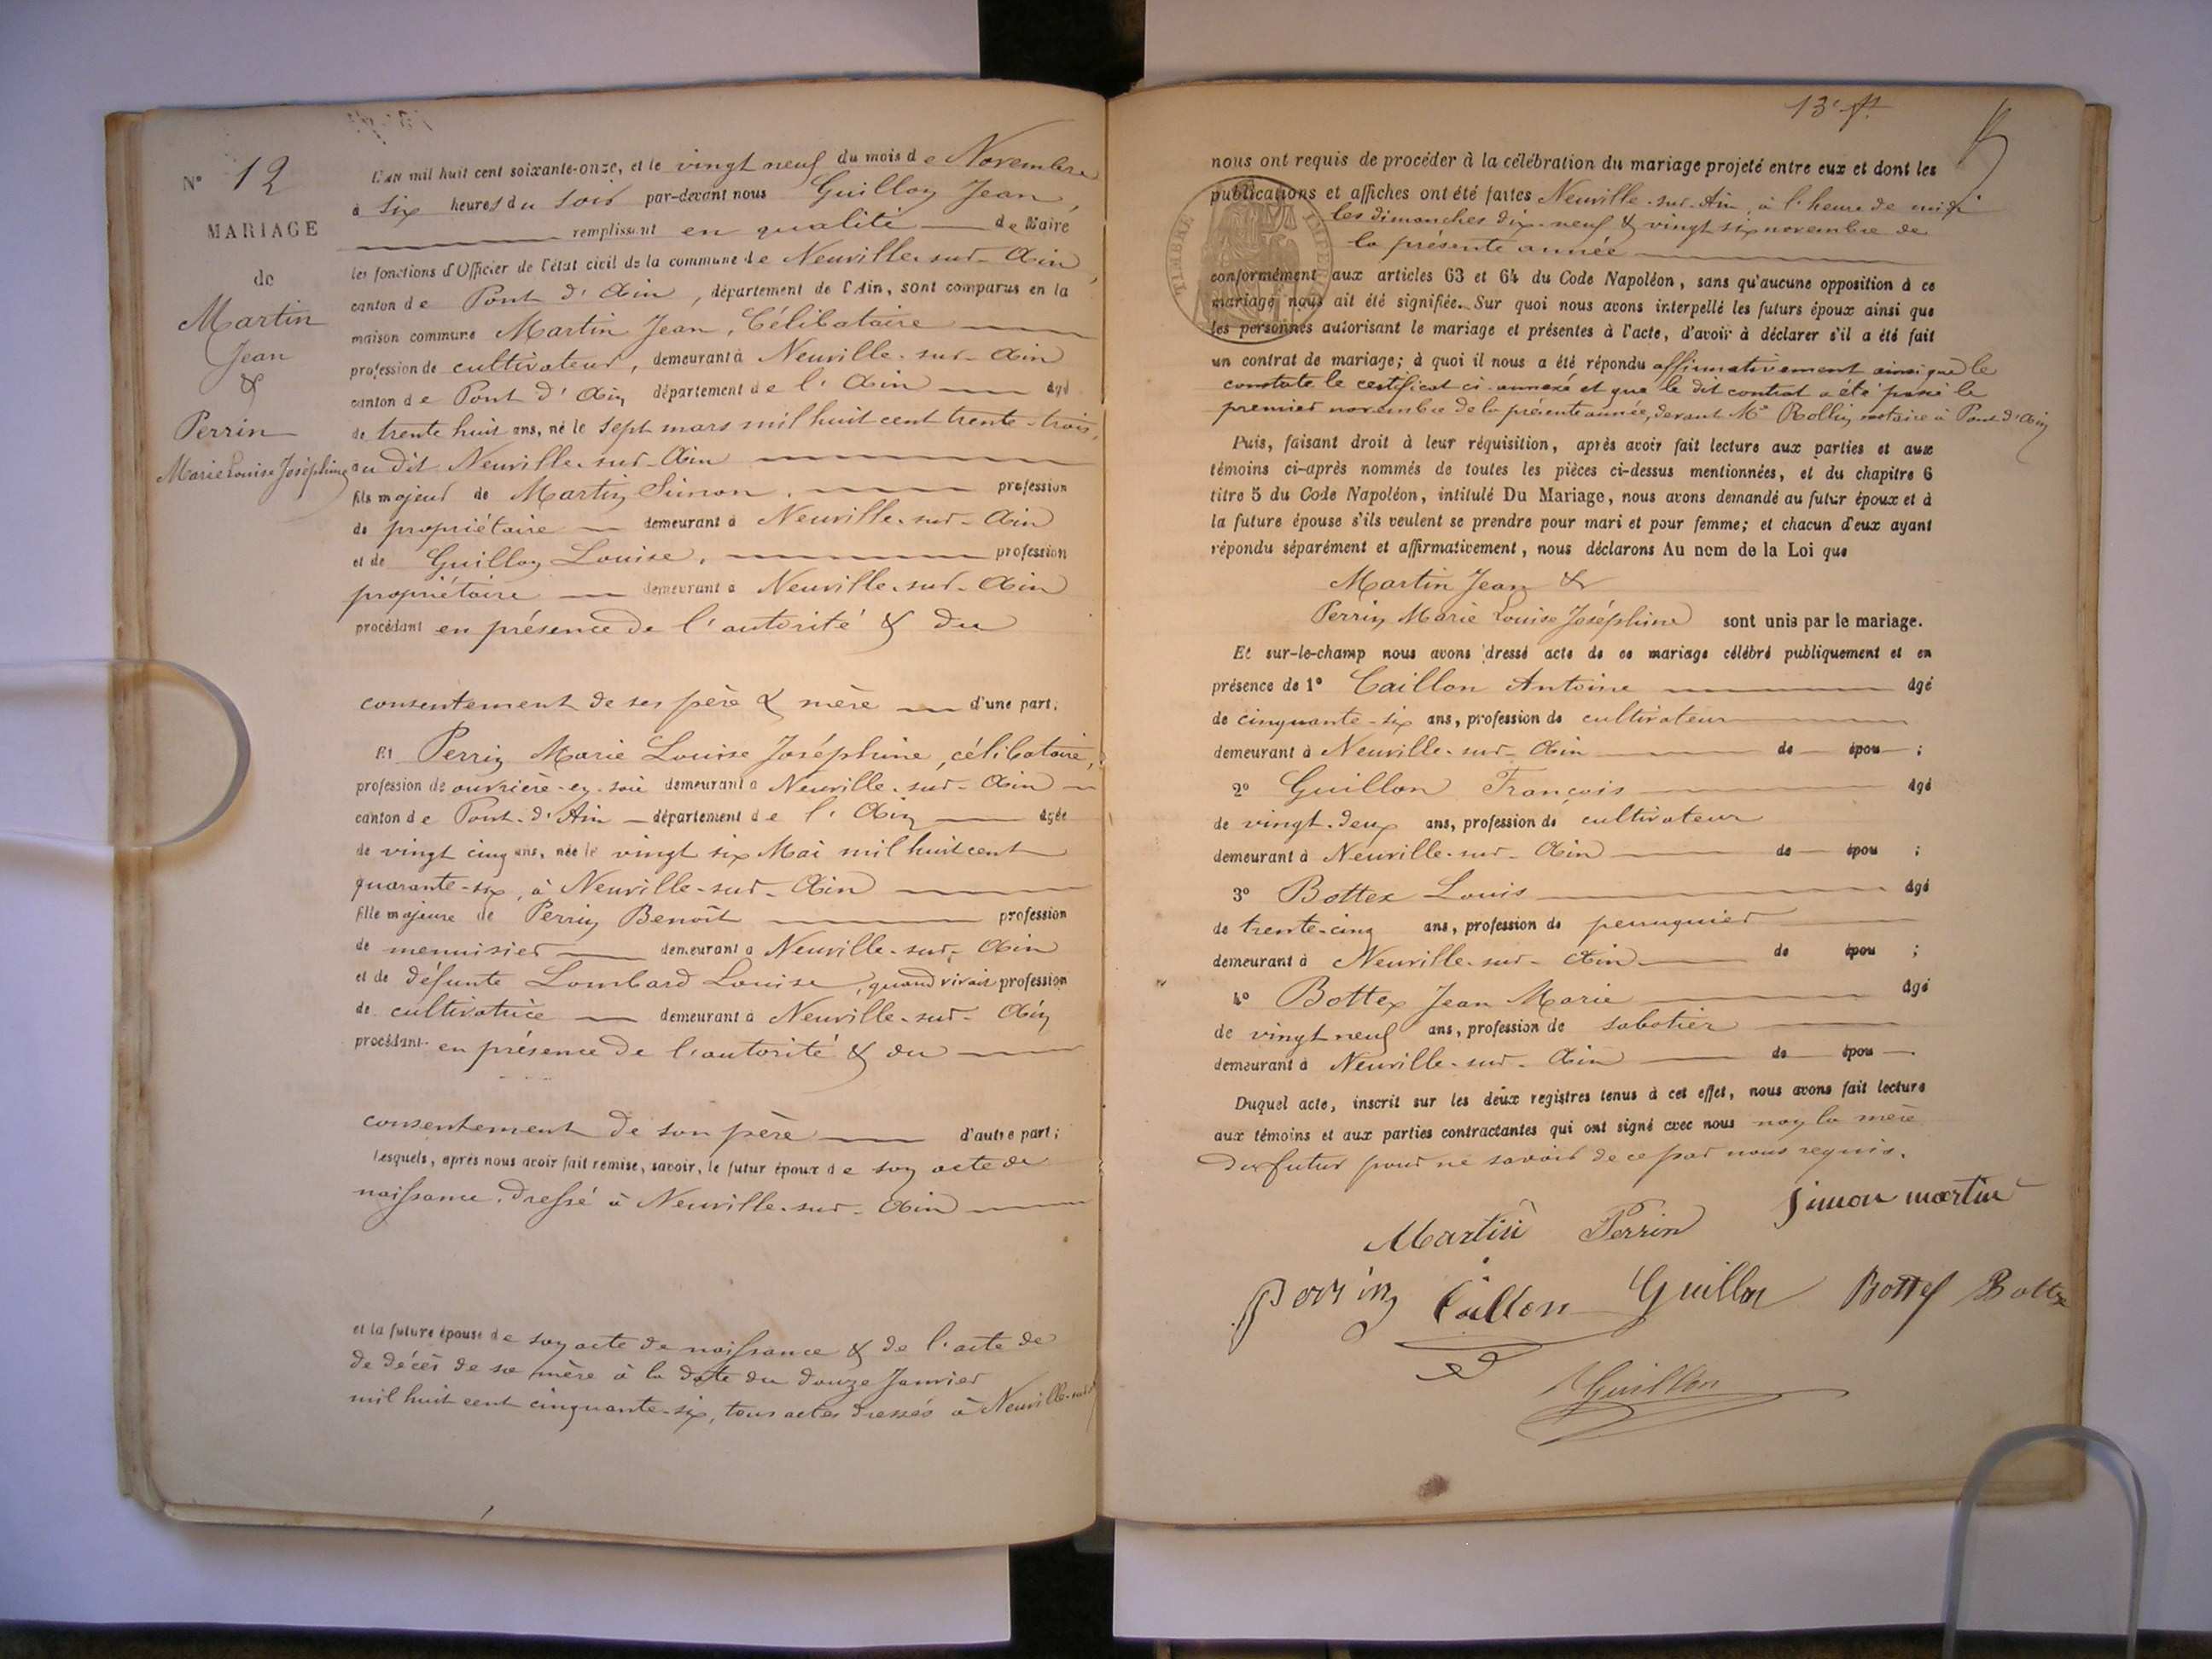 N° 12
MARIAGE
de
Martin
Jean
&
Perrin
Marie Louise Joséphine
L'AN mil huit cent soixante-onze, et le vingt neuf du mois de Novembre
à six heures du soir par-devant nous Guillon Jean,
remplissant en qualité de Maire
les fonctions d'Officier de l'état civil de la commune de Neuville-sur-Ain,
canton de Pont d'Ain, département de l'Ain, sont comparus en la
maison commune Martin Jean, Célibataire
profession de cultivateur, demeurant à Neuville-sur-Ain
canton de Pont d'Ain département de l'Ain âgé
de trente huit ans, né le sept mars mil huit cent trente-trois,
au dit Neuville-sur-Ain
fils majeur de Martin Simon, profession
de propriétaire demeurant à Neuville-sur-Ain
et de Guillon Louise, profession
propriétaire demeurant à Neuville-sur-Ain
procédant en présence de l'autorité & du
consentement de ses père & mère d'une part;
Et Perrin Marie Louise Joséphine, célibataire,
profession de ouvrière-en-soie demeurant à Neuville-sur-Ain
canton de Pont-d'Ain département de l'Ain âgée
de vingt cinq ans, née le vingt six Mai mil huit cent
quarante-six, à Neuville-sur-Ain
fille majeure de Perrin Benoît profession
de menuisier demeurant à Neuville-sur-Ain
et de défunte Lombard Louise, quand vivait profession
de cultivatrice demeurant à Neuville-sur-Ain
procédant en présence de l'autorité & du
consentement de son père d'autre part;
Lesquels, après nous avoir fait remise, savoir, le futur époux de son acte de
naissance, dressé à Neuville-sur-Ain
et la future épouse de son acte de naissance & de l'acte de
de décès de sa mère à la date du douze Janvier
mil huit cent cinquante-six, tous actes dressés à Neuville-sur
13e ft
nous ont requis de procéder à la célébration du mariage projeté entre eux et dont les
publications et affiches ont été faites Neuville-sur-Ain, à l'heure de midi
les dimanches dix-neuf & vingt six novembre de
la présente année
TIMBRE IMPERIAL
conformément aux articles 63 et 64 du Code Napoléon, sans qu'aucune opposition à ce
mariage nous ait été signifiée. Sur quoi nous avons interpellé les futurs époux ainsi que
les personnes autorisant le mariage et présentes à l'acte, d'avoir à déclarer s'il a été fait
un contrat de mariage; à quoi il nous a été répondu affirmativement ainsi que le
constate le certificat ci-annexé et que le dit contrat a été passé le
premier novembre de la présente année, devant Me Rollin, notaire à Pont d'Ain
Puis, faisant droit à leur réquisition, après avoir fait lecture aux parties et aux
témoins ci-après nommés de toutes les pièces ci-dessus mentionnées, et du chapitre 6
titre 5 du Code Napoléon, intitulé Du Mariage, nous avons demandé au futur époux et à
la future épouse s'ils veulent se prendre pour mari et pour femme; et chacun d'eux ayant
répondu séparément et affirmativement, nous déclarons Au nom de la Loi que
Martin Jean &
Perrin Marie Louise Joséphine sont unis par le mariage.
Et sur-le-champ nous avons dressé acte de ce mariage célébré publiquement et en
présence de 1° Caillon Antoine âgé
de cinquante-six ans, profession de cultivateur
demeurant à Neuville-sur-Ain de épou ;
2° Guillon François âgé
de vingt-deux ans, profession de cultivateur
demeurant à Neuville-sur-Ain de épou ;
3° Bottex Louis âgé
de trente-cinq ans, profession de perruquier
demeurant à Neuville-sur-Ain de épou ;
4° Bottex Jean Marie âgé
de vingt neuf ans, profession de sabotier
demeurant à Neuville-sur-Ain de épou .
Duquel acte, inscrit sur les deux registres tenus à cet effet, nous avons fait lecture
aux témoins et aux parties contractantes qui ont signé avec nous non la mère
du futur pour ne savoir de ce par nous requis.
Martin Perrin Simon martin
perrin Caillon Guillon Bottex Bottex
Guillon